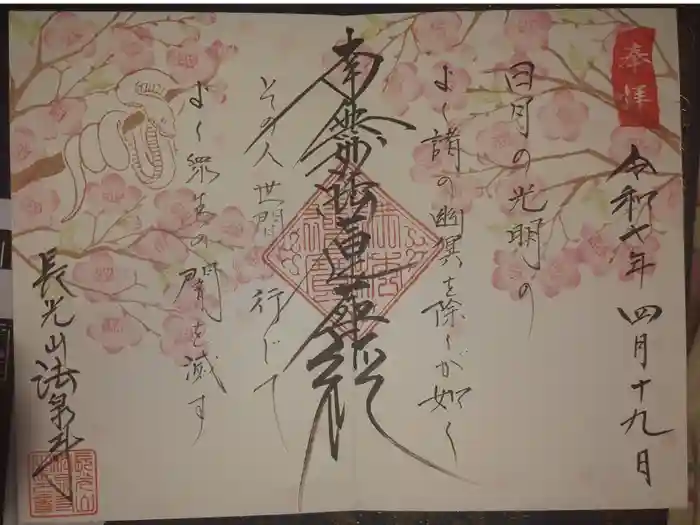 奉拝
令和七年 四月十九日
日月の光明の
よく諸の幽冥を除くが如く
南無妙法蓮華経
その人世間に行じて
よく衆生の闇を滅す
長光山法泉寺